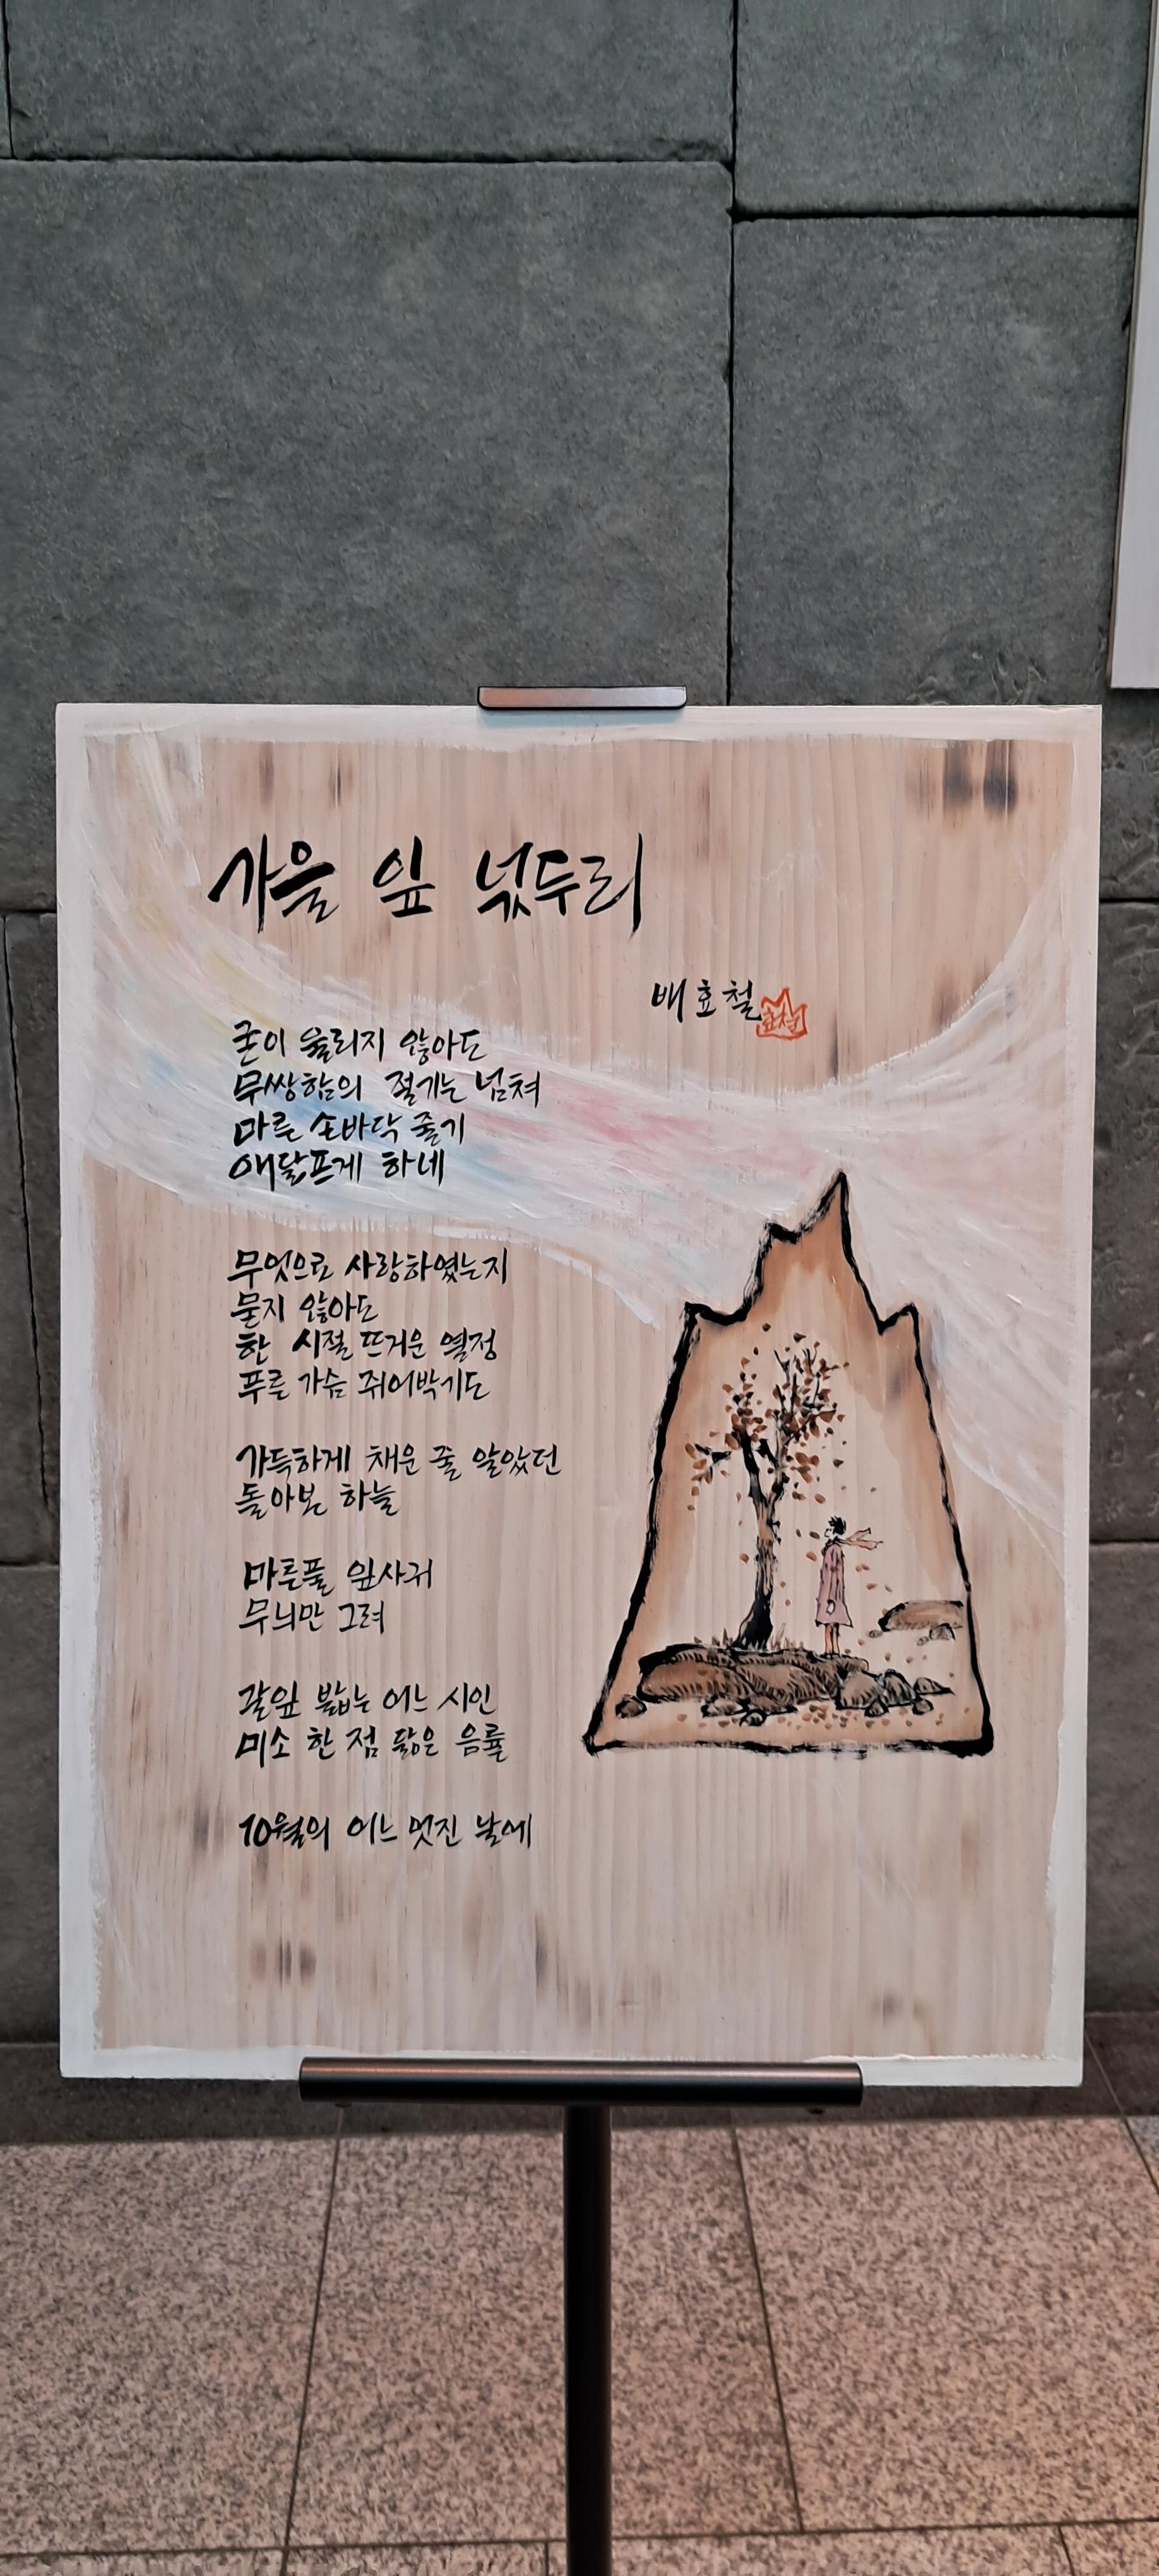 가을 잎 넋두리
배효철
효철
굳이 울리지 않아도
무쌍함의 절기는 넘쳐
마른 손바닥 줄기
애닯프게 하네
무엇으로 사랑하였는지
묻지 않아도
한 시절 뜨거운 열정
푸른 가슴 쥐어박기도
가득하게 채운 줄 알았던
돌아본 하늘
마른풀 잎사귀
무늬만 그려
갈잎 밟는 어느 시인
미소 한 점 닮은 음률
10월의 어느 멋진 날에